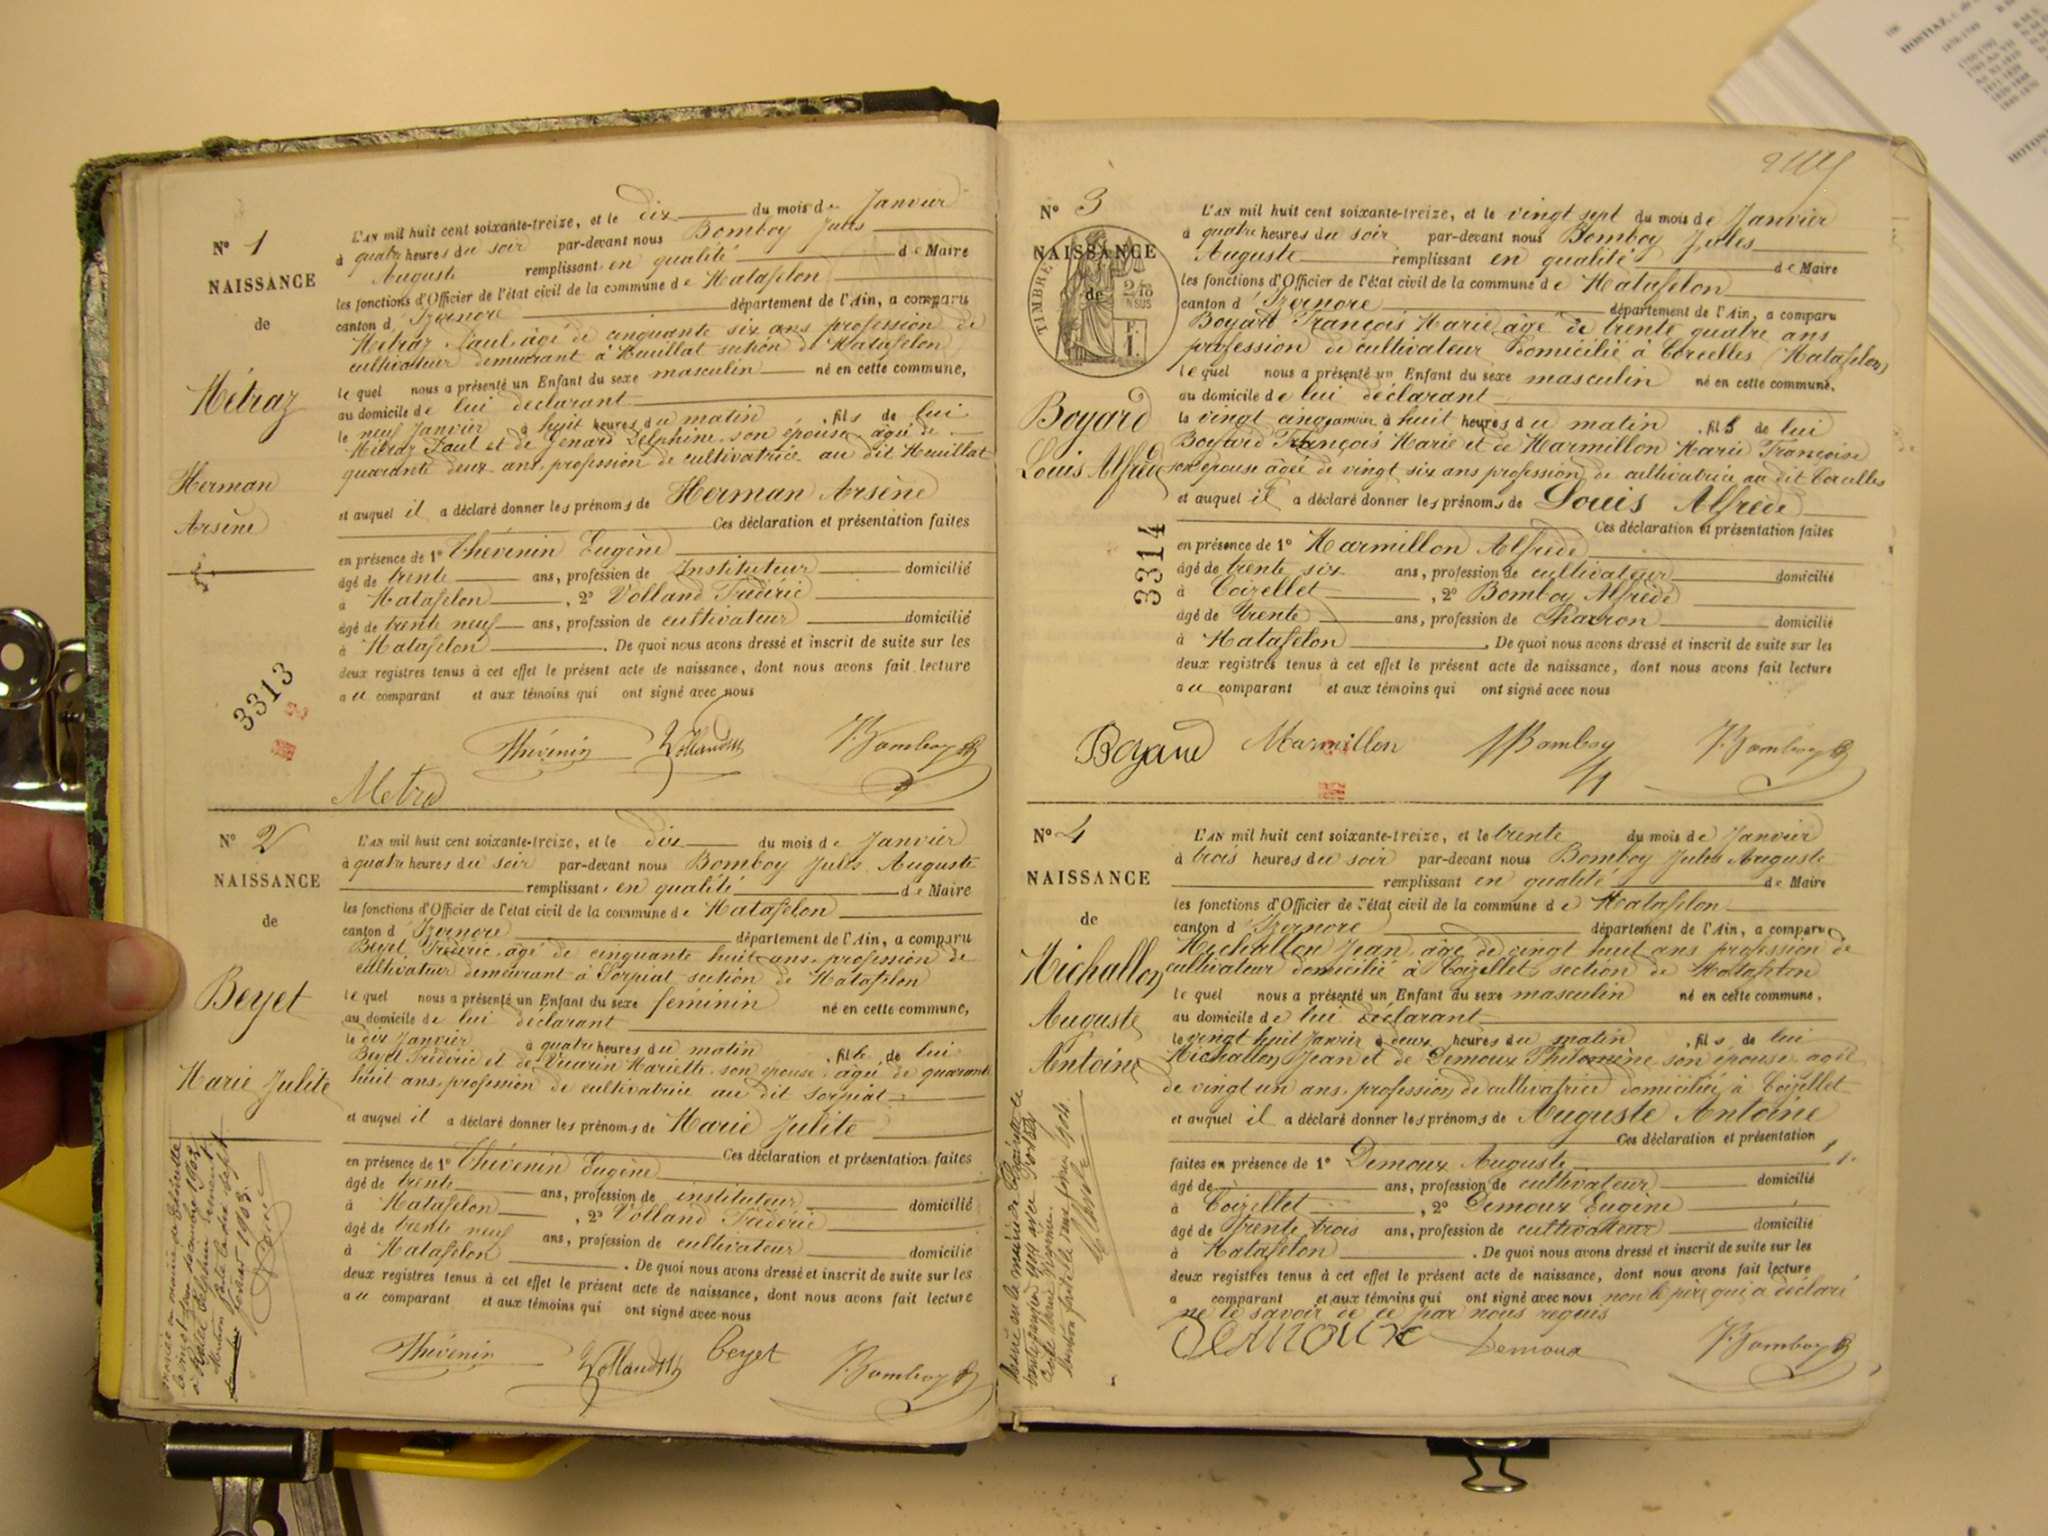 N° 1
NAISSANCE
de
Métraz
Herman
Arsène
L'AN mil huit cent soixante-treize, et le dix du mois de Janvier
à quatre heures du soir par-devant nous Bomboy Jules
Auguste remplissant en qualité de Maire
les fonctions d'Officier de l'état civil de la commune de Matafelon
canton d'Izernore département de l'Ain, a comparu
Métraz Paul, âgé de cinquante six ans profession de
cultivateur demeurant à Heuillat section de Matafelon
le quel nous a présenté un Enfant du sexe masculin né en cette commune,
au domicile de lui déclarant
le neuf Janvier à huit heures du matin, fils de lui
Métraz Paul et de Genard Delphine son épouse, âgée de
quarante deux ans, profession de cultivatrice au dit Heuillat
et auquel il a déclaré donner les prénoms de Herman Arsène
Ces déclaration et présentation faites
en présence de 1° Thévenin Eugène
âgé de trente ans, profession de Instituteur domicilié
à Matafelon, 2° Volland Frédéric
âgé de trente neuf ans, profession de cultivateur domicilié
à Matafelon. De quoi nous avons dressé et inscrit de suite sur les
deux registres tenus à cet effet le présent acte de naissance, dont nous avons fait lecture
au comparant et aux témoins qui ont signé avec nous
3313
Thévenin Volland J Bomboy
Metra
N° 2
NAISSANCE
de
Beyet
Marie Julite
L'AN mil huit cent soixante-treize, et le dix du mois de Janvier
à quatre heures du soir par-devant nous Bomboy Jules Auguste
remplissant en qualité de Maire
les fonctions d'Officier de l'état civil de la commune de Matafelon
canton d'Izernore département de l'Ain, a comparu
Beyet Fréderic, âgé de cinquante huit ans, profession de
cultivateur demeurant à Sorpiat section de Matafelon
le quel nous a présenté un Enfant du sexe féminin né en cette commune,
au domicile de lui déclarant
le dix Janvier à quatre heures du matin, fille de lui
Beyet Fréderic et de Vuarin Mariette son épouse, âgée de quarante
huit ans, profession de cultivatrice au dit Sorpiat
et auquel il a déclaré donner les prénoms de Marie Julite
Ces déclaration et présentation faites
en présence de 1° Thévenin Eugène
âgé de trente ans, profession de instituteur domicilié
à Matafelon, 2° Volland Fréderic
âgé de trente neuf ans, profession de cultivateur domicilié
à Matafelon. De quoi nous avons dressé et inscrit de suite sur les
deux registres tenus à cet effet le présent acte de naissance, dont nous avons fait lecture
au comparant et aux témoins qui ont signé avec nous
Thévenin Volland beyet J Bomboy
N° 3
NAISSANCE
de
TIMBRE
Boyard
Louis Alfrède
L'AN mil huit cent soixante-treize, et le vingt sept du mois de Janvier
à quatre heures du soir par-devant nous Bomboy Jules
Auguste remplissant en qualité de Maire
les fonctions d'Officier de l'état civil de la commune de Matafelon
canton d'Izernore département de l'Ain, a comparu
Boyard François Marie, âgé de trente quatre ans
profession de cultivateur domicilié à Corcelles (Matafelon)
le quel nous a présenté un Enfant du sexe masculin né en cette commune,
au domicile de lui déclarant
le vingt cinq janvier à huit heures du matin, fils de lui
Boyard François Marie et de Marmillon Marie Françoise
son épouse âgée de vingt six ans profession de cultivatrice au dit Corcelles
et auquel il a déclaré donner les prénoms de Louis Alfrède
Ces déclaration et présentation faites
en présence de 1° Marmillon Alfrède
âgé de trente six ans, profession de cultivateur domicilié
à Coizellet, 2° Bomboy Alfrède
âgé de trente ans, profession de Charron domicilié
à Matafelon. De quoi nous avons dressé et inscrit de suite sur les
deux registres tenus à cet effet le présent acte de naissance, dont nous avons fait lecture
au comparant et aux témoins qui ont signé avec nous
3314
Boyard Marmillon Bomboy J Bomboy
N° 4
NAISSANCE
de
Michallon
Auguste
Antoine
L'AN mil huit cent soixante-treize, et le trente du mois de Janvier
à trois heures du soir par-devant nous Bomboy Jules Auguste
remplissant en qualité de Maire
les fonctions d'Officier de l'état civil de la commune de Matafelon
canton d'Izernore département de l'Ain, a comparu
Michallon Jean, âgé de vingt huit ans profession de
cultivateur domicilié à Coizellet section de Matafelon
le quel nous a présenté un Enfant du sexe masculin né en cette commune,
au domicile de lui déclarant
le vingt huit Janvier à deux heures du matin, fils de lui
Michallon Jean et de Demoux Philomène son épouse âgée
de vingt un ans, profession de cultivatrice domiciliée à Coizellet
et auquel il a déclaré donner les prénoms de Auguste Antoine
Ces déclaration et présentation
faites en présence de 1° Demoux Auguste
âgé de ans, profession de cultivateur domicilié
à Coizellet, 2° Demoux Eugène
âgé de trente trois ans, profession de cultivateur domicilié
à Matafelon. De quoi nous avons dressé et inscrit de suite sur les
deux registres tenus à cet effet le présent acte de naissance, dont nous avons fait lecture
a comparant et aux témoins qui ont signé avec nous non le père qui a déclaré
ne le savoir de ce par nous requis
Demoux Demoux J Bomboy
HOSTIAZ